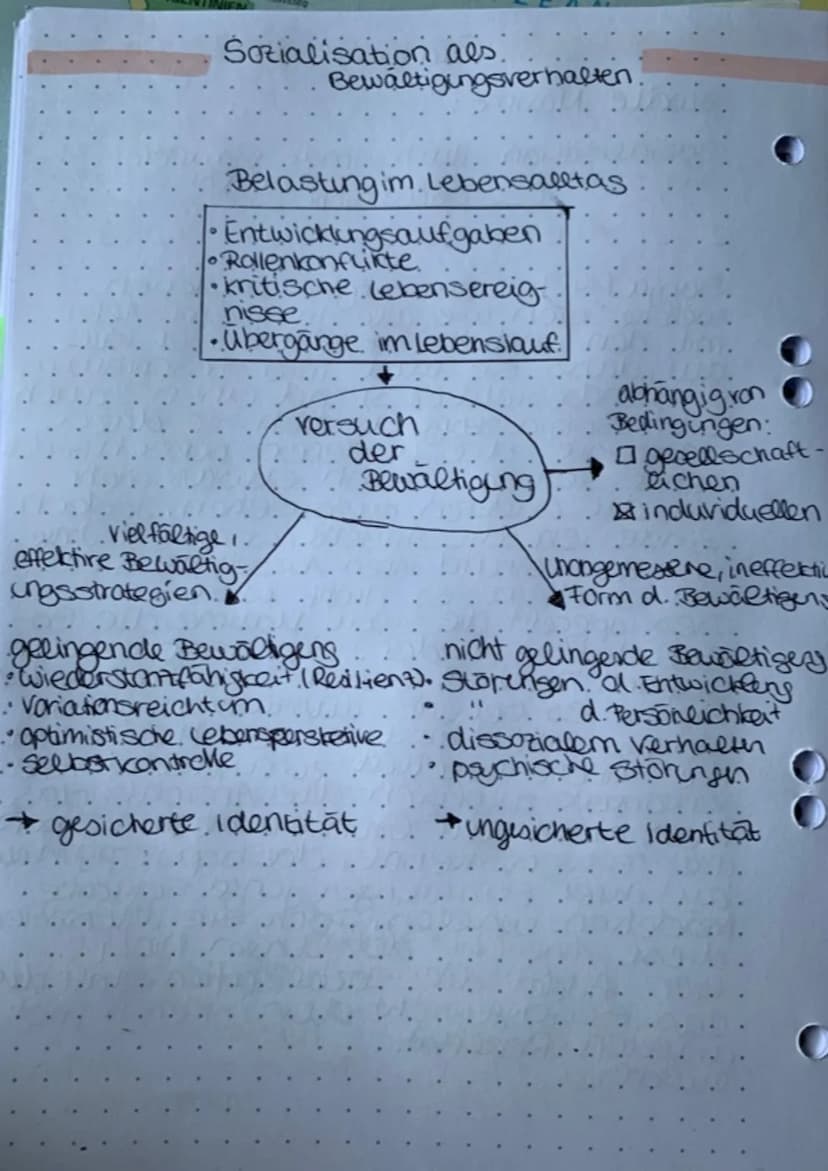 Sozialisation als
Bewältigungsverhalten
Belastung im Lebensalltag
• Entwicklungsaufgaben
• Rollenkonflikte
• kritische Lebensereig-
nisse
• Übergänge im Lebenslauf
Versuch
der
Bewältigung
abhängig von
Bedingungen:
gesellschaft-
lichen
individuellen
vielfältige,
effektive Bewältig-
ungsstrategien
unangemessene, ineffekti
Form d. Bewältigung
gelingende Bewältigung
• Wiederstantfähigkeit (Resilienz)
• Variationsreichtum
• optimistische Lebensperspektive
• Selbstkontrolle
→ gesicherte Identität
nicht gelingende Bewältigung
• Störungen d. Entwicklung
• " d. Persönlichkeit
• dissozialem Verhalten
• psychische Störungen
→ ungesicherte Identität